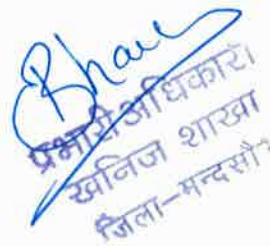 Bhave
प्रभारी अधिकारी
खनिज शाखा
जिला-मन्दसौर